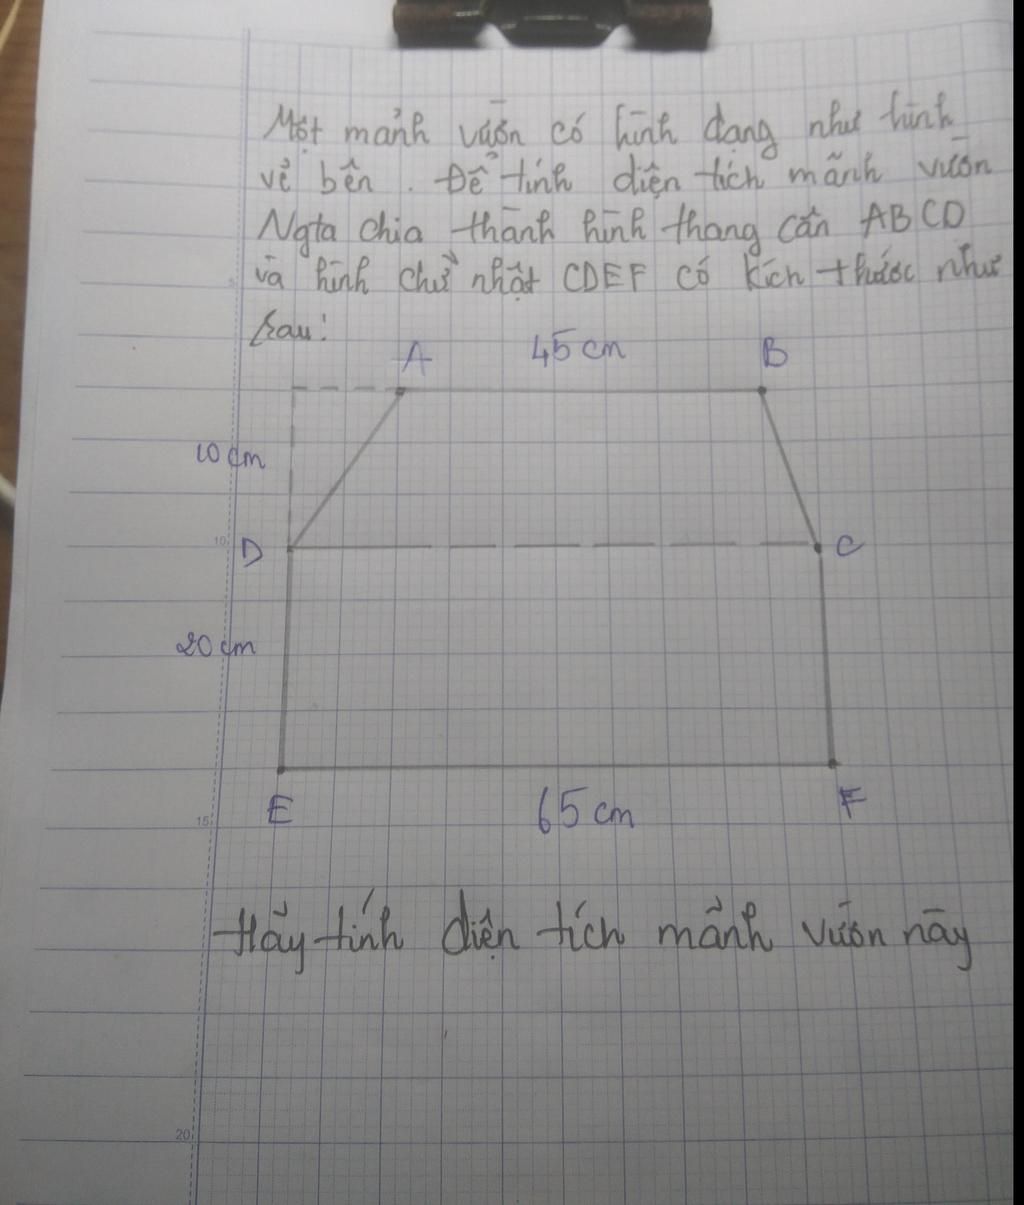 Một mảnh vườn có hình dạng như hình
vẽ bên. Để tính diện tích mảnh vườn
Ngta chia thành hình thang cân ABCD
và hình chữ nhật CDEF có kích thước như
sau:
A 45 cm B
10 cm
10
D C
20 cm
E 65 cm F
15
Hãy tính diện tích mảnh vườn này
20